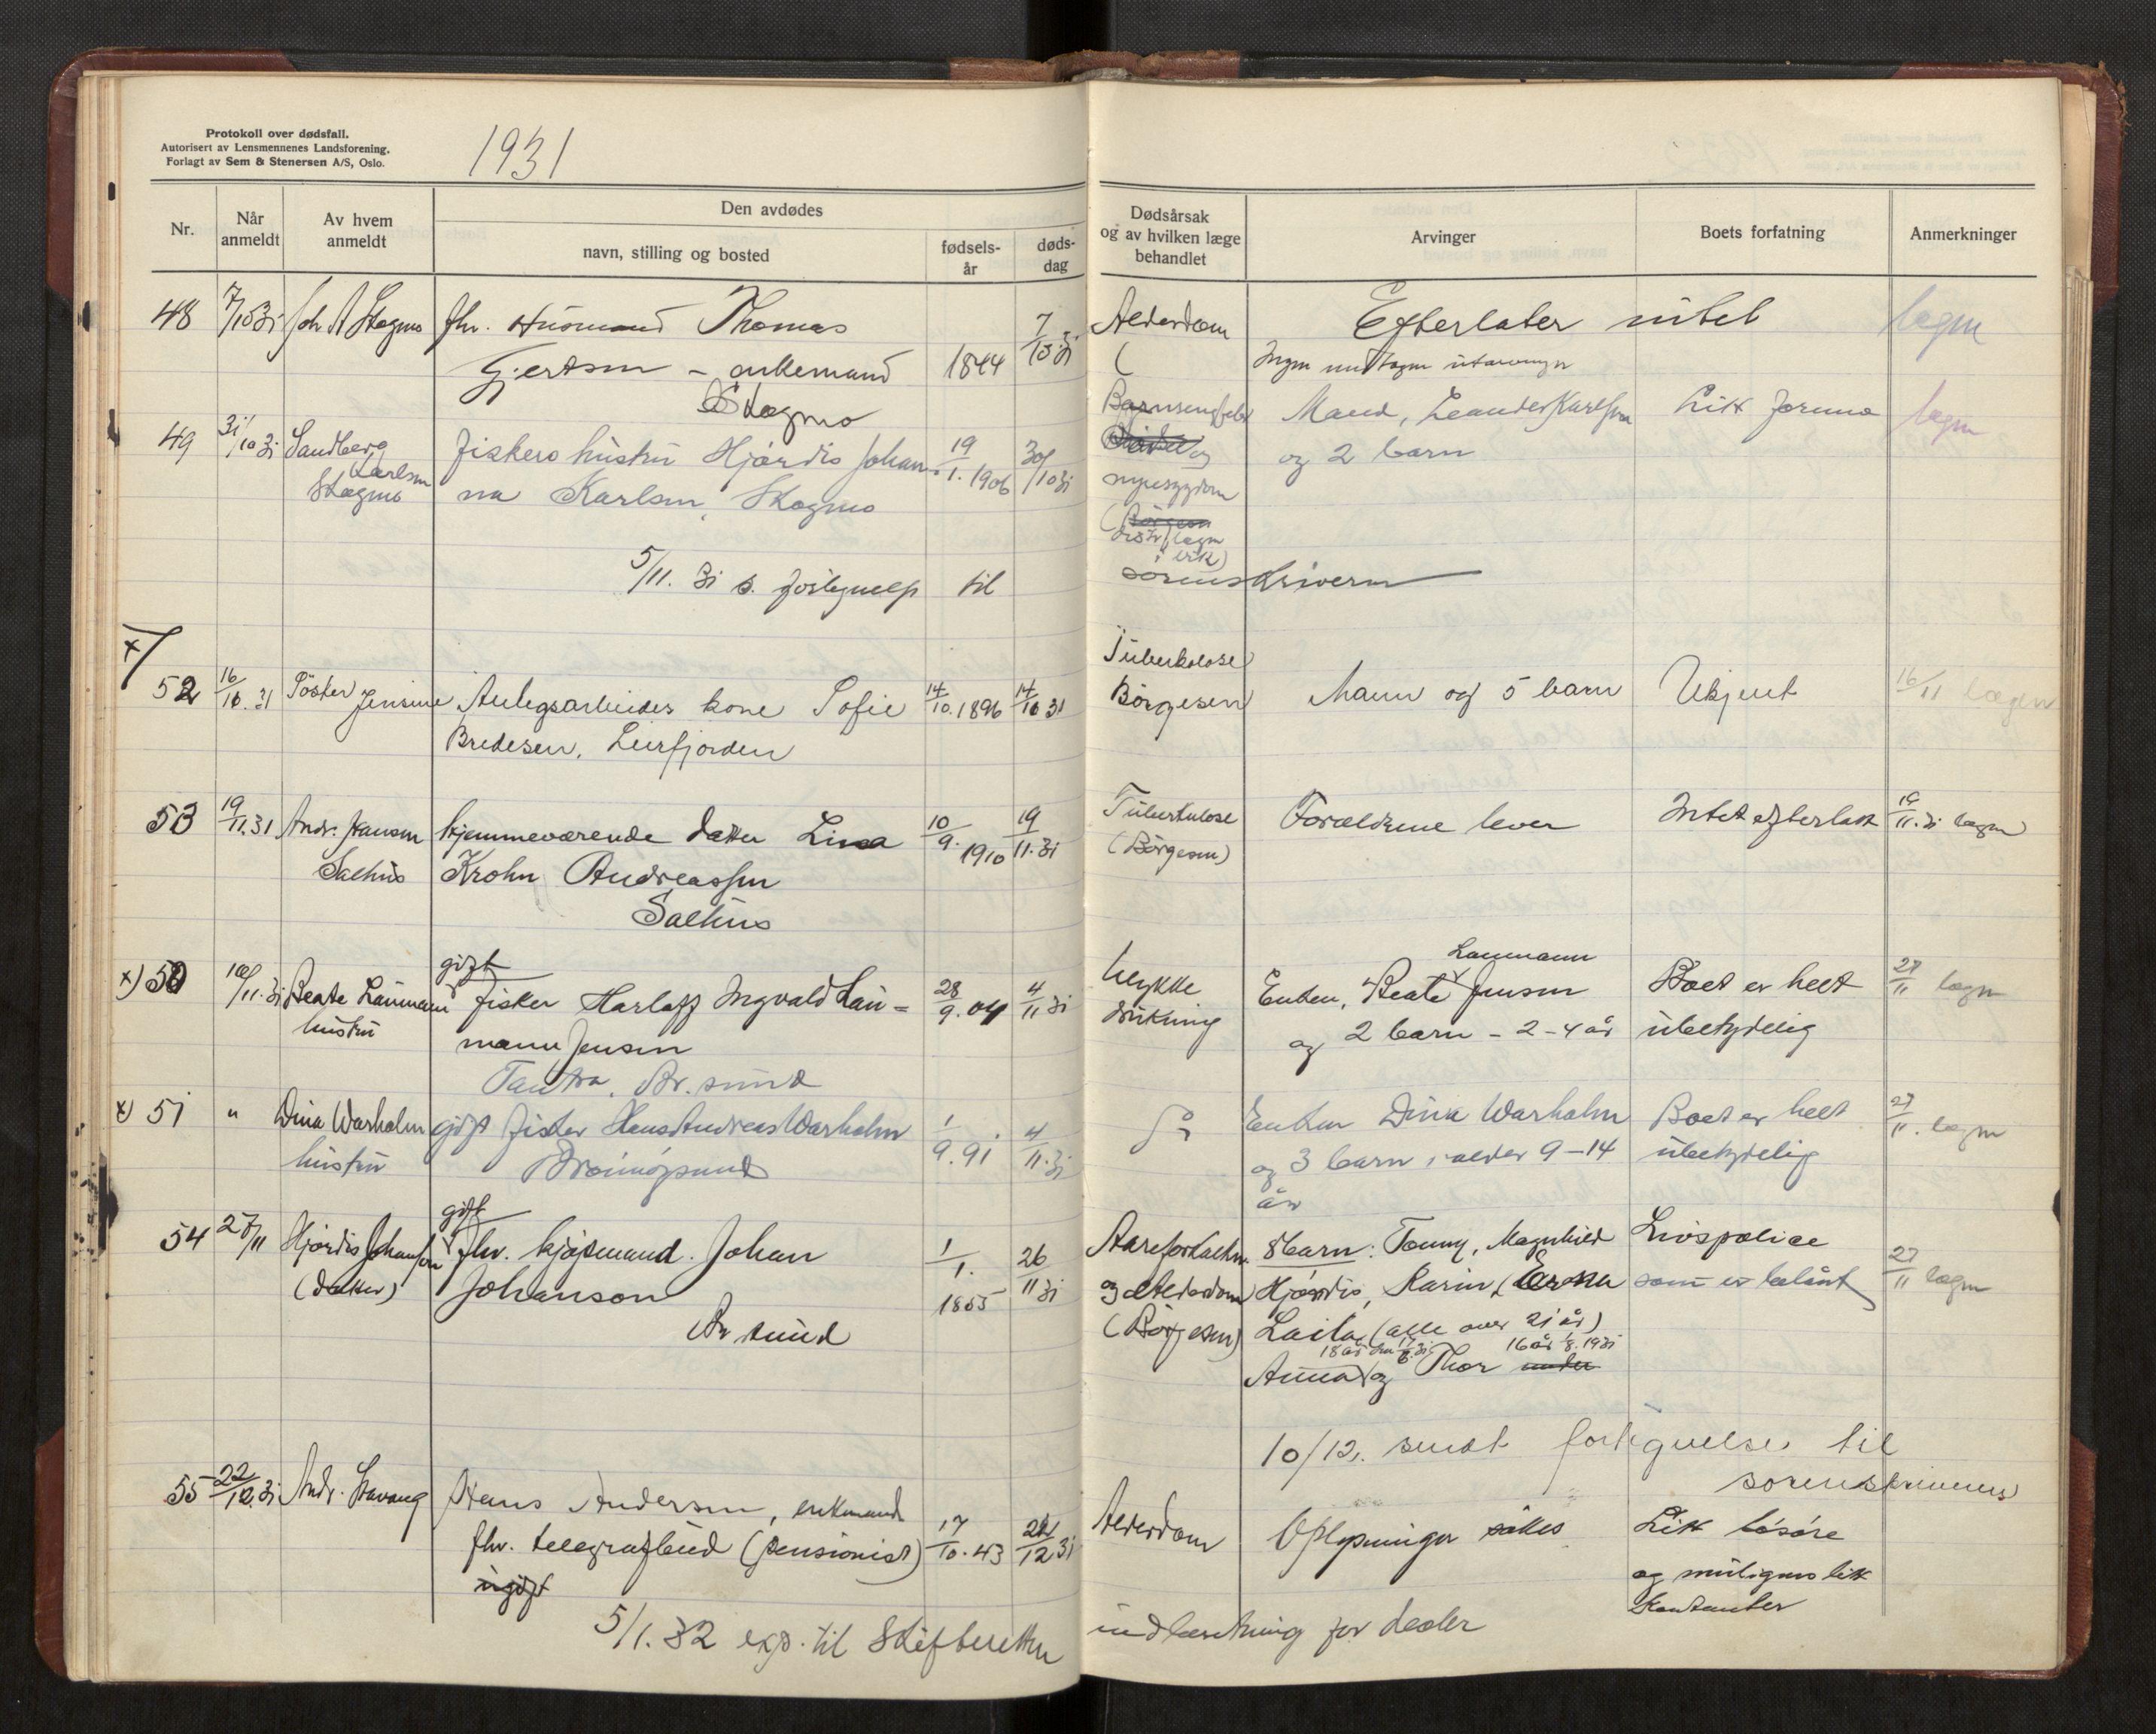 Protokoll over dødsfall.
Autorisert av Lensmennenes Landsforening.
Forlagt av Sem & Stenersen A/S, Oslo.
1931
Nr.
Når anmeldt
Av hvem anmeldt
Den avdødes
navn, stilling og bosted
fødsels-år
døds-dag
Dødsårsak og av hvilken læge behandlet
Arvinger
Boets forfatning
Anmerkninger
48 7/10 31 Joh A Skogmo fhv. Husmand Thomas 7/10 31 Alderdom Efterlater intet
Gjertsen - enkemand 1844 Ingen
Skogmo
49 31/10 31 Sandberg Karlsen Skogmo fiskers hustru Hjørdis Johan- 19/1. 1906 30/10 31 Mand, Leander Karlsen Litt
na Karlsen, Skogmo og nyresygdom og 2 barn
Børgesen
distr. lægen i Vik)
5/11. 31 s. fortegnelse til sorenskriveren
x/
52 16/10. 31 Søster Jensine Anlegsarbeider kone Sofie 14/10. 1896 14/10 31 Tuberkolose Mann og 5 barn Ukjent 16/11 lægen
Bredesen, Leirfjorden Børgesen
53 19/11. 31 Andr. Hansen hjemmeværende datter Lina 10/9. 1910 19/11. 31 Tuberkulose Forældrene lever Intet efterlatt 19/11. 31
Salhus Krohn Andreassen (Børgesen)
Salhus
x) 50 10/11. 31 Beate Laumann gift fisker Harloff Ingvald Lau- 28/9. 04 4/11 31 Ulykke Enken, Beate Laumann Jensen Boet er helt 27/11
hustru mann Jensen drukning og 2 barn - 2-4 år ubetydelig
Br. sund
x) 51 " Dina Warholm gift fisker Hans Andreas Warholm 1/9. 91 4/11. 31 Enken Dina Warholm Boet er helt 27/11.
hustru Brønnøysund og 3 barn i alder 9-14 ubetydelig
år
54 27/11 Hjørdis Johanson gift fhv. kjøpmand. Johan 1/1. 1855 26/11 31 Aareforkalkn. 8 barn: Tonny, Magnhild Livspolice 27/11 lægen
(datter) Johanson og Alderdom Hjørdis, Karin, Erna som er belånt
Br sund (Børgesen) Laila (alle over 21 år)
18 år 16 år 1/8. 1931
Anna og Thor under
10/12. sendt fortegnelse til
sorenskriveren
55 22/12. 31 Andr. Stavang Hans Andersen, enkemand 17/10. 43 21/12 31 Alderdom Oplysninger søkes Litt løsøre
fhv. telegrafbud (pensionist) og muligens litt
ugift kontanter
5/1. 32 eksp. til Skifteretten indberetning for